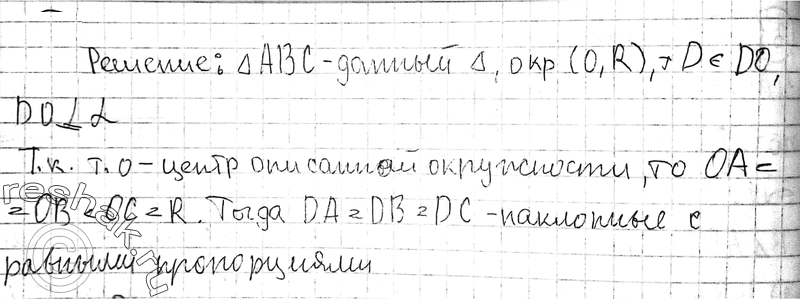 Решение: △ABC - данный △, окр (O, R), т D ∈ DO,
DO ⊥ α
Т.к. т. О - центр описанной окружности, то OA =
= OB = OC = R. Тогда DA = DB = DC - наклонные с
равными пропорциями
reshak.ru